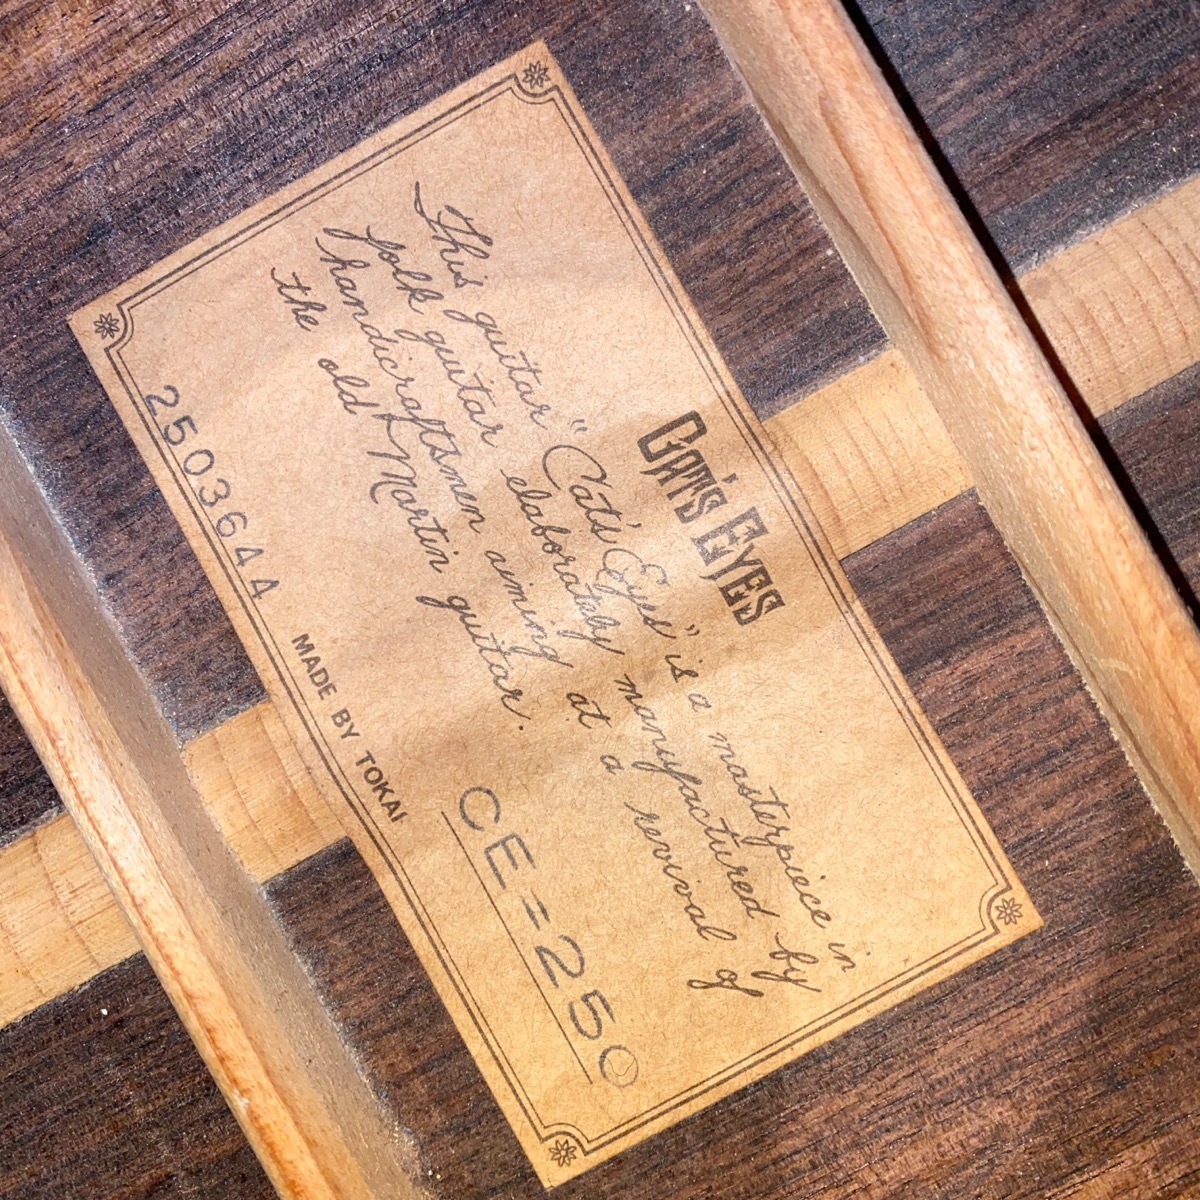 CAT'S EYES
This guitar "Cat's Eyes" is a masterpiece in
folk guitar elaborately manufactured by
handicraftsmen aiming at a revival of
the old Martin guitar.
CE=250
2503644
MADE BY TOKAI